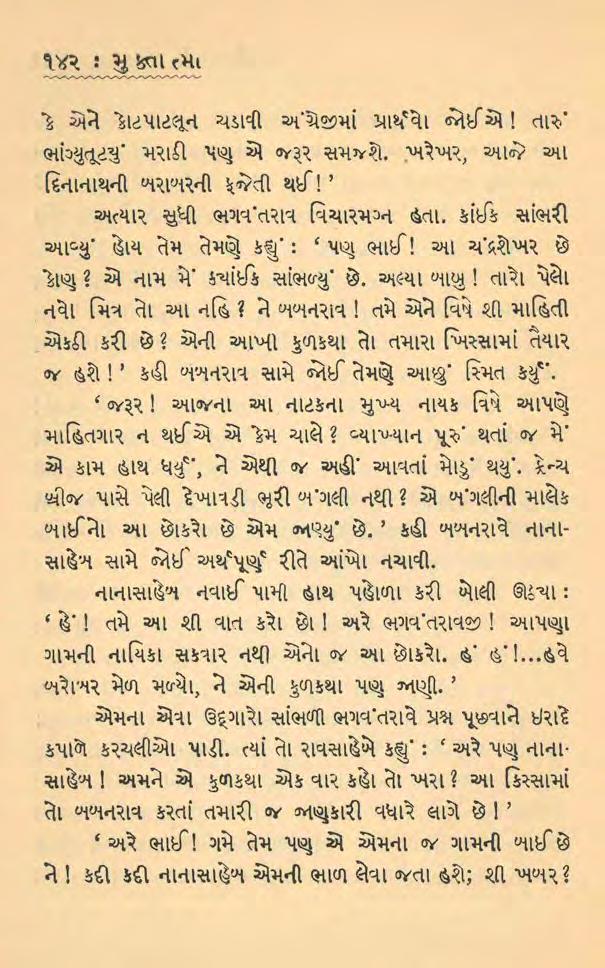 ૧૪૨ : મુક્તાત્મા
કે એને કોટપાટલૂન ચડાવી અંગ્રેજીમાં પ્રાર્થવો જોઈએ! તારું
ભાંગ્યુતૂટ્યું મરાઠી પણ એ જરૂર સમજશે. ખરેખર, આજે આ
દિનાનાથની બરાબરની ફજેતી થઈ!’
અત્યાર સુધી ભગવંતરાવ વિચારમગ્ન હતા. કાંઈક સાંભરી
આવ્યું હોય તેમ તેમણે કહ્યું : ‘પણ ભાઈ! આ ચંદ્રશેખર છે
કોણ? એ નામ મેં ક્યાંઈક સાંભળ્યું છે. અલ્યા બાબુ! તારો પેલો
નવો મિત્ર તો આ નહિ? ને બબનરાવ! તમે એને વિષે શી માહિતી
એકઠી કરી છે? એની આખી કુળકથા તો તમારા ખિસ્સામાં તૈયાર
જ હશે!’ કહી બબનરાવ સામે જોઈ તેમણે આછું સ્મિત કર્યું.
‘જરૂર! આજના આ નાટકના મુખ્ય નાયક વિષે આપણે
માહિતગાર ન થઈએ એ કેમ ચાલે? વ્યાખ્યાન પૂરું થતાં જ મેં
એ કામ હાથ ધર્યું, ને એથી જ અહીં આવતાં મોડું થયું. ફ્રેન્ચ
બ્રીજ પાસે પેલી દેખાવડી ભૂરી બંગલી નથી? એ બંગલીની માલેક
બાઈનો આ છોકરો છે એમ જાણ્યું છે.’ કહી બબનરાવે નાના-
સાહેબ સામે જોઈ અર્થપૂર્ણ રીતે આંખો નચાવી.
નાનાસાહેબ નવાઈ પામી હાથ પહોળા કરી બોલી ઊઠ્યા :
‘હેં! તમે આ શી વાત કરો છો! અરે ભગવંતરાવજી! આપણા
ગામની નાયિકા સકવાર નથી એનો જ આ છોકરો. હં હં!...હવે
બરોબર મેળ મળ્યો, ને એની કુળકથા પણ જાણી.’
એમના એવા ઉદ્ગારો સાંભળી ભગવંતરાવે પ્રશ્ન પૂછવાને ઇરાદે
કપાળે કરચલીઓ પાડી. ત્યાં તો રાવસાહેબે કહ્યું : ‘અરે પણ નાના-
સાહેબ! અમને એ કુળકથા એક વાર કહો તો ખરા? આ કિસ્સામાં
તો બબનરાવ કરતાં તમારી જ જાણકારી વધારે લાગે છે!’
‘અરે ભાઈ! ગમે તેમ પણ એ એમના જ ગામની બાઈ છે
ને! કદી કદી નાનાસાહેબ એમની ભાળ લેવા જતા હશે; શી ખબર?